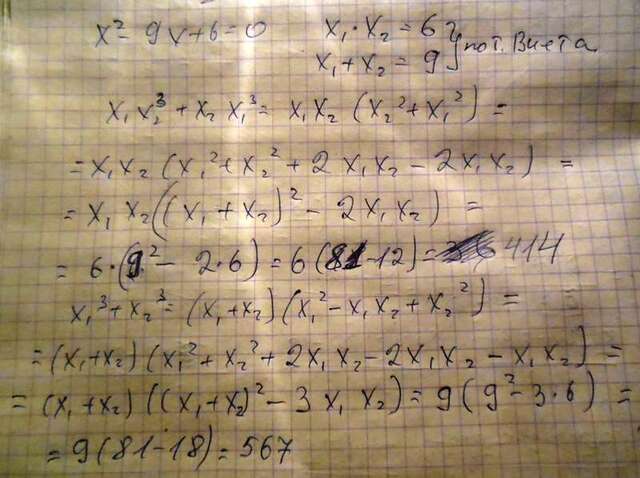 x² - 9x + 6 = 0
x₁ · x₂ = 6
x₁ + x₂ = 9 } по т. Виета
x₁x₂³ + x₂x₁³ = x₁x₂(x₂² + x₁²) =
= x₁x₂(x₁² + x₂² + 2x₁x₂ - 2x₁x₂) =
= x₁x₂((x₁ + x₂)² - 2x₁x₂) =
= 6·(9² - 2·6) = 6(81 - 12) = 414
x₁³ + x₂³ = (x₁ + x₂)(x₁² - x₁x₂ + x₂²) =
= (x₁ + x₂)(x₁² + x₂² + 2x₁x₂ - 2x₁x₂ - x₁x₂) =
= (x₁ + x₂)((x₁ + x₂)² - 3x₁x₂) = 9(9² - 3·6) =
= 9(81 - 18) = 567